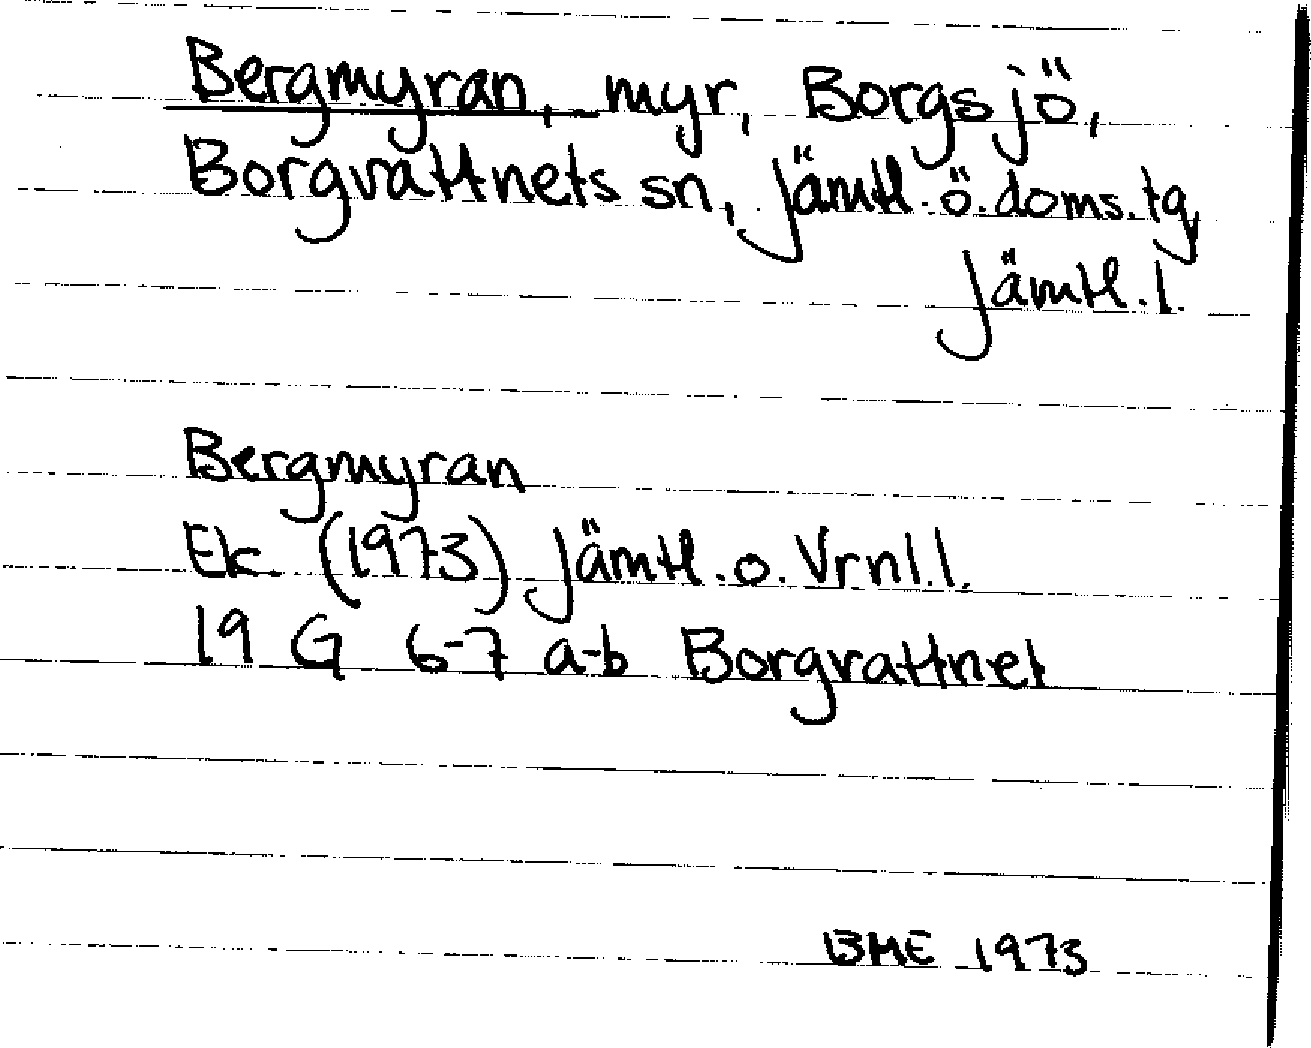 Bergmyran, myr, Borgsjö,
Borgvattnets sn, Jämtl. ö. doms. tg
Jämtl. l.
Bergmyran
Ek (1973) Jämtl. o. Vrnl. l.
19 G 6-7 a-b Borgvattnet
BME 1973